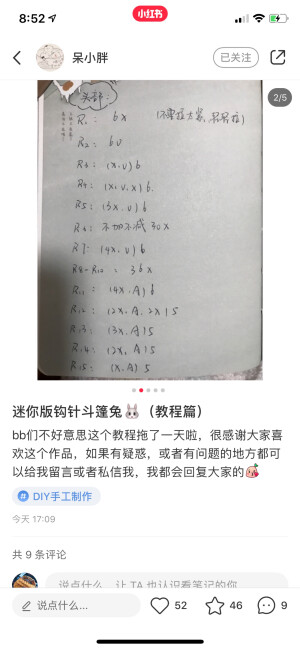 8:52
小红书
呆小胖
已关注
2/5
头部:
R1: 6x
R2: 6v
R3: (x.v)6
R4: (x.v.x)6.
R5: (3x.v)6
R6: 不加不减 30x
R7: (4x.v)6
R8-R10: 36x
R11: (4x.A)6
R12: (2x.A.2x)5
R13: (3x.A)5
R14: (2x.A)5
R15: (x.A)5
迷你版钩针斗篷兔🐰(教程篇)
bb们不好意思这个教程拖了一天啦,很感谢大家喜
欢这个作品,如果有疑惑,或者有问题的地方都可
以给我留言或者私信我,我都会回复大家的
# DIY手工制作
今天 17:09
共 9 条评论
说点什么,让 TA 也认识看笔记的你
说点什么...
52
46
9